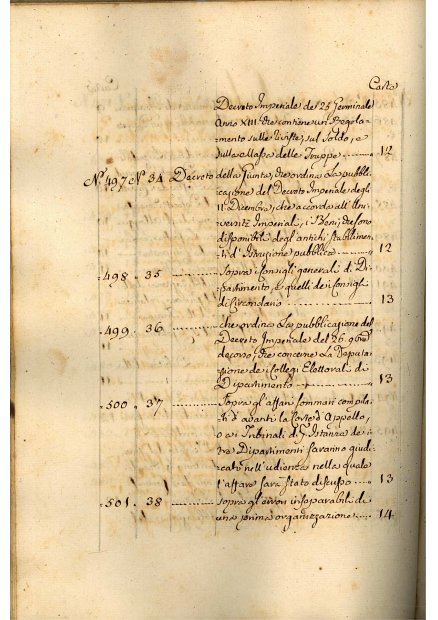 Carte
Decreto Imperiale de' 25 Germinale
Anno XIII che contiene un Regola-
mento sulle riviste, sul soldo, e
sulla Massa delle Truppe ........ 12
N.° 497 N.° 34 Decreto della Giunta, che ordina La pubbli-
cazione del Decreto Imperiale degli
11 Dicembre, che accorda all' Uni-
versità Imperiali, i Beni, che sono
disponibili degli antichi stabilimen-
ti d' Istruzione pubblica ........ 12
" 498 . 35 ........ sopra Consigli generali di Di-
partimento, e quelli de' Consigli
di Circondario ........ 13
" 499 . 36 ........ che ordina La pubblicazione del
Decreto Imperiale del 26. 9bre
decorso, che concerne La Deputa-
zione de' Collegi Elettorali di
Dipartimento ........ 13
" 500 . 37 ........ Sopra gl' affari sommari compila-
ti d' avanti la Corte d' Appello,
o ai Tribunali di Istanza de' i
tre Dipartimenti saranno giudi-
cati nell' udienza nella quale
l' affare sarà stato discusso ........ 13
" 501 . 38 ........ sopra gl' errori inseparabili di
una prima organizzazione ........ 14